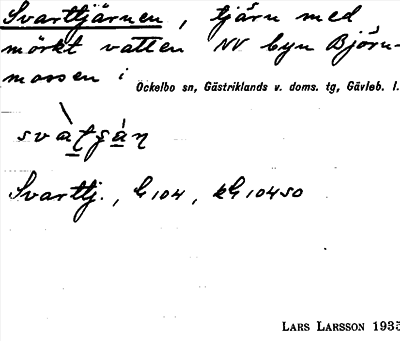 Svarttjärnen, tjärn med
mörkt vatten NV byn Björn-
mossen i Ockelbo sn, Gästriklands v. doms. tg, Gävleb. l.
Svarttj., G 104, kG 10450
LARS LARSSON 1935